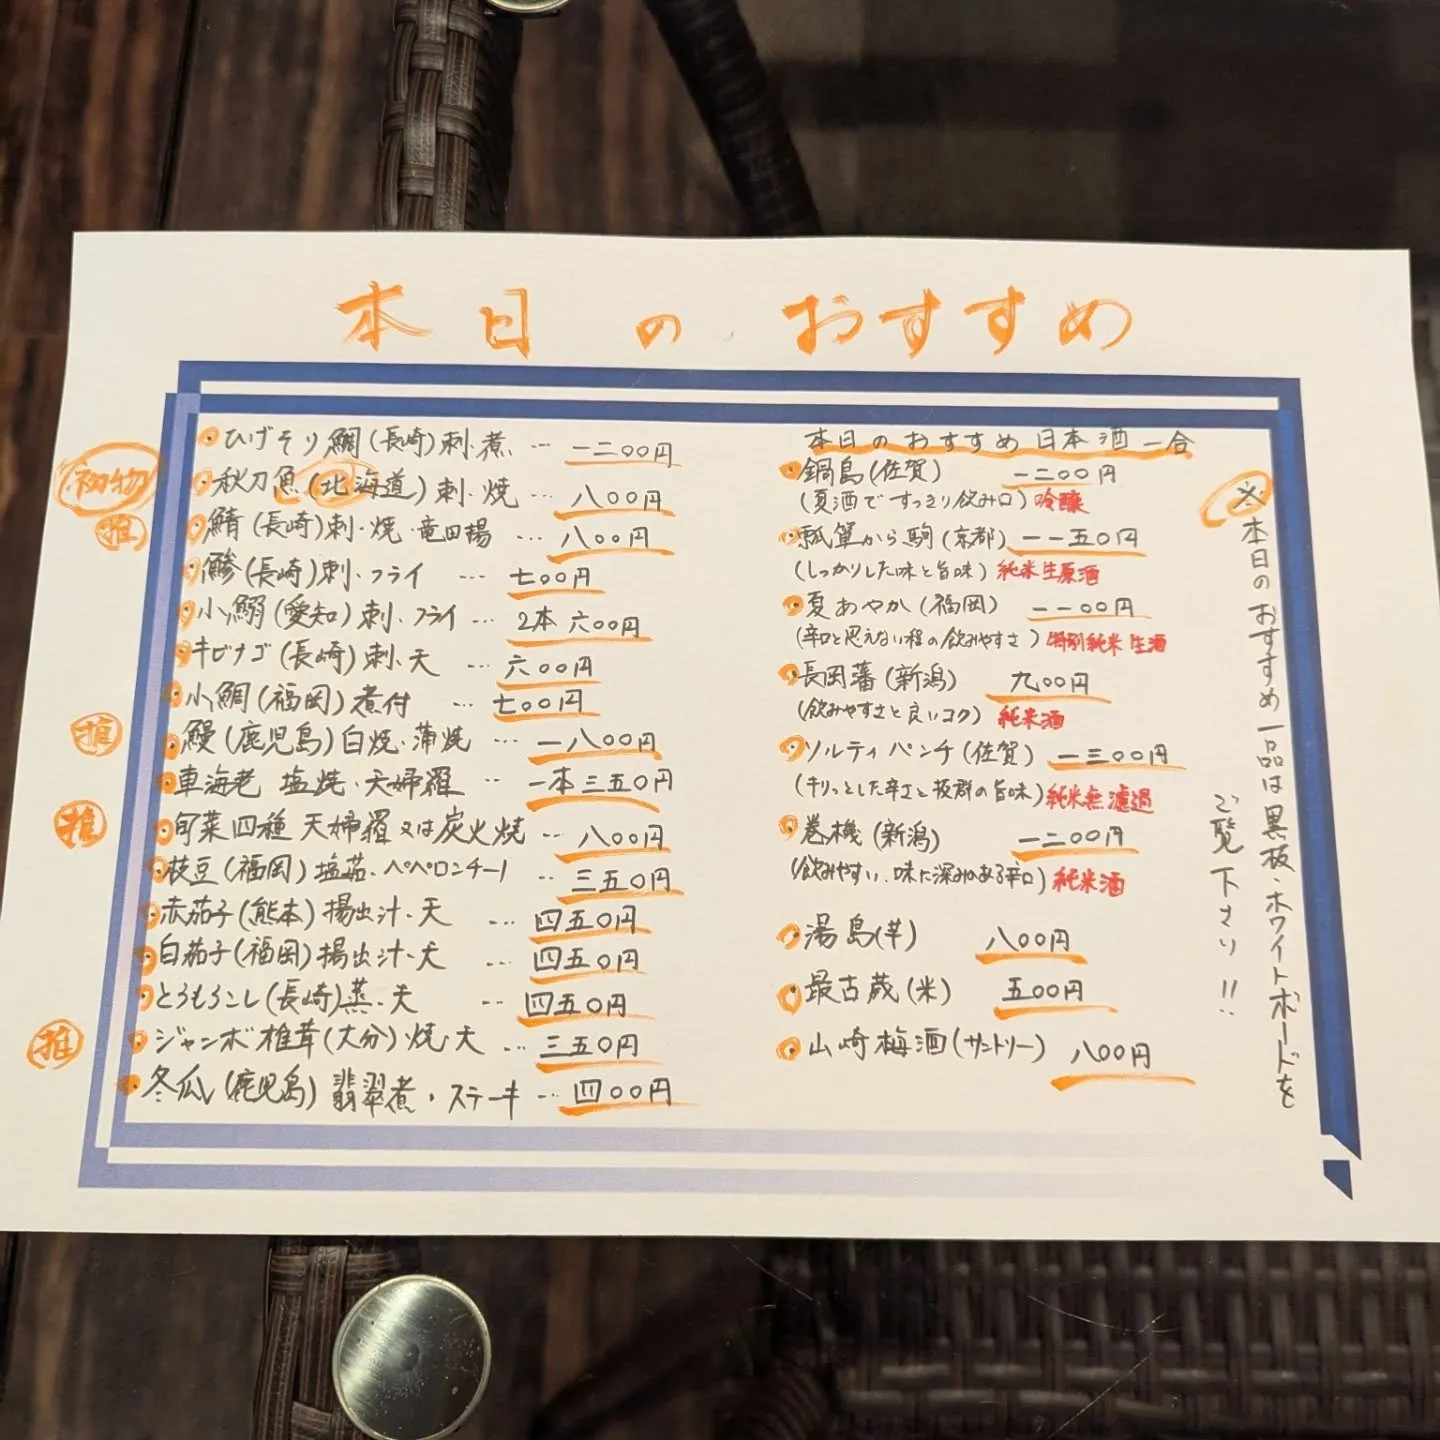 本日のおすすめ
ひげそり鯛(長崎)刺・煮 … 一二〇〇円
初物 秋刀魚(北海道)刺・焼 … 八〇〇円
推 鯖(長崎)刺・焼・竜田揚 … 八〇〇円
鯵(長崎)刺・フライ … 七〇〇円
小鰯(愛知)刺・フライ … 2本 六〇〇円
キビナゴ(長崎)刺・天 … 六〇〇円
小鯛(福岡)煮付 … 七〇〇円
推 鰻(鹿児島)白焼・蒲焼 … 一八〇〇円
車海老 塩焼・天婦羅 … 一本三五〇円
推 旬菜四種 天婦羅又は炭火焼 … 八〇〇円
枝豆(福岡)塩茹・ペペロンチーノ … 三五〇円
赤茄子(熊本)揚出汁・天 … 四五〇円
白茄子(福岡)揚出汁・天 … 四五〇円
とうもろこし(長崎)蒸・天 … 四五〇円
推 ジャンボ椎茸(大分)焼・天 … 三五〇円
冬瓜(鹿児島)翡翠煮・ステーキ … 四〇〇円
本日のおすすめ日本酒一合
鍋島(佐賀) 一二〇〇円
(夏酒ですっきり飲み口)吟醸
瓢箪から駒(京都) 一一五〇円
(しっかりした味と旨味)純米生原酒
夏あやか(福岡) 一一〇〇円
(辛口と思えない程の飲みやすさ)特別純米生酒
長岡藩(新潟) 九〇〇円
(飲みやすさと良いコク)純米酒
ソルティパンチ(佐賀) 一三〇〇円
(キリっとした辛さと抜群の旨味)純米無濾過
巻機(新潟) 一二〇〇円
(飲みやすい、味に深みのある辛口)純米酒
湯島(芋) 八〇〇円
最古蔵(米) 五〇〇円
山崎梅酒(サントリー) 八〇〇円
※本日のおすすめ一品は黒板・ホワイトボードを
ご覧下さい!!